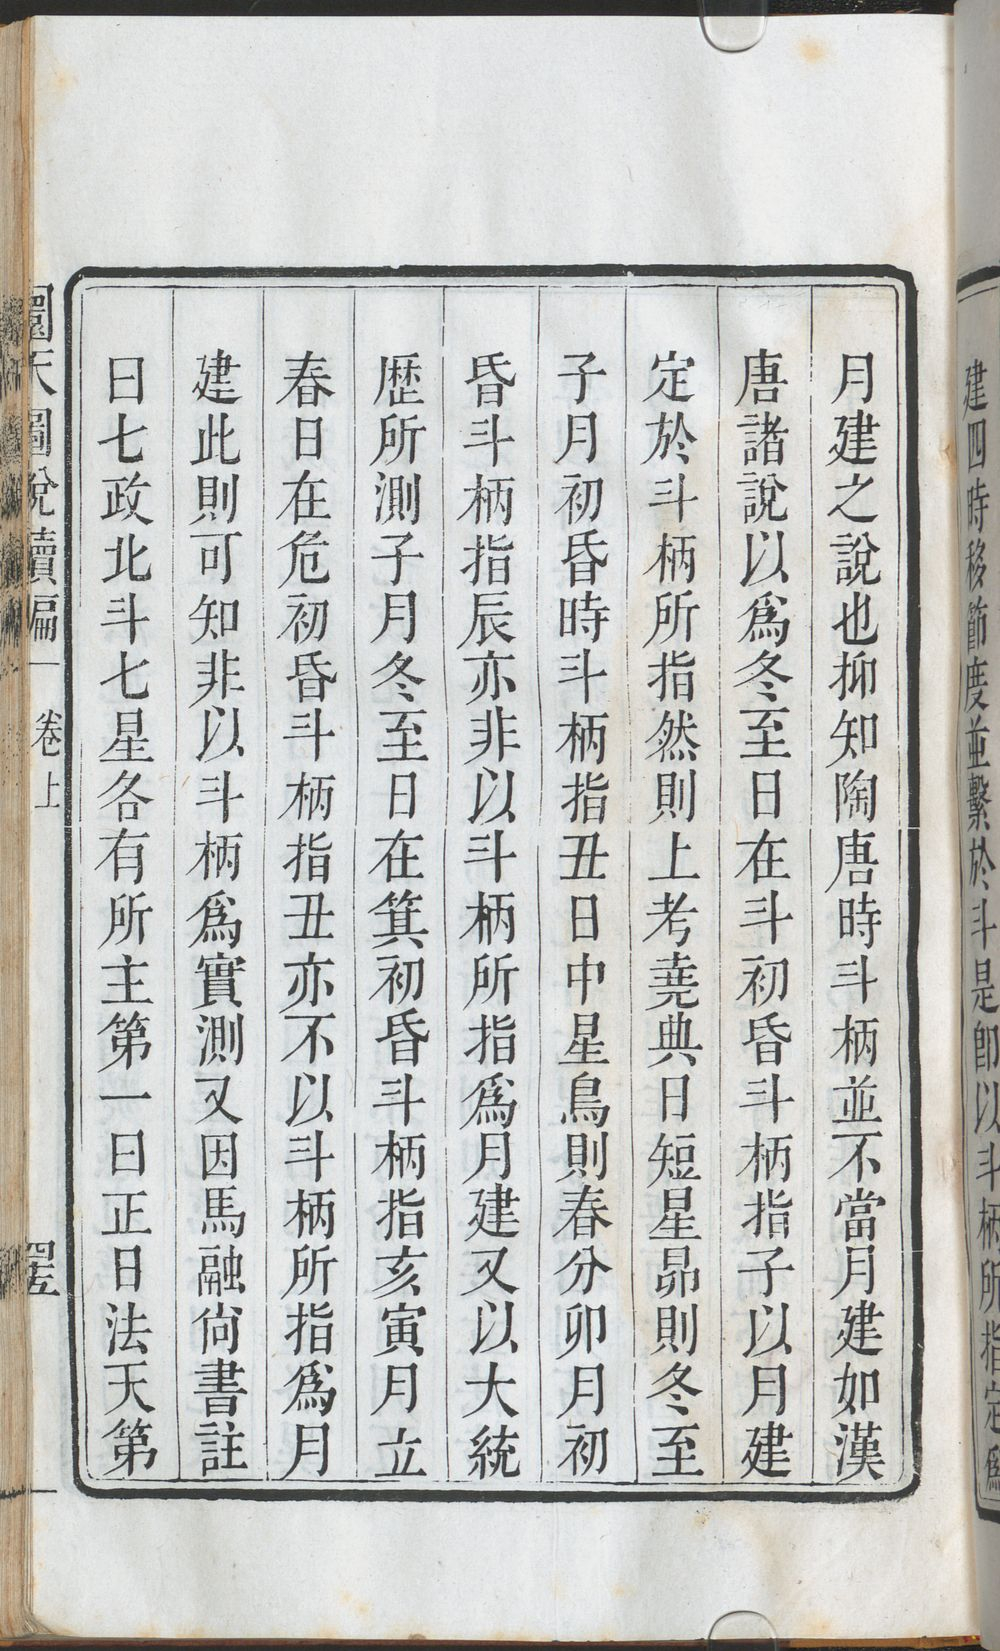 建四時移節度並繫於斗是卽以斗柄所指定爲
月建之說也抑知陶唐時斗柄並不當月建如漢
唐諸說以爲冬至日在斗初昏斗柄指子以月建
定於斗柄所指然則上考堯典日短星昴則冬至
子月初昏時斗柄指丑日中星鳥則春分卯月初
昏斗柄指辰亦非以斗柄所指爲月建又以大統
歷所測子月冬至日在箕初昏斗柄指亥寅月立
春日在危初昏斗柄指丑亦不以斗柄所指爲月
建此則可知非以斗柄爲實測又因馬融尙書註
曰七政北斗七星各有所主第一曰正日法天第
圜天圖說續編 卷上